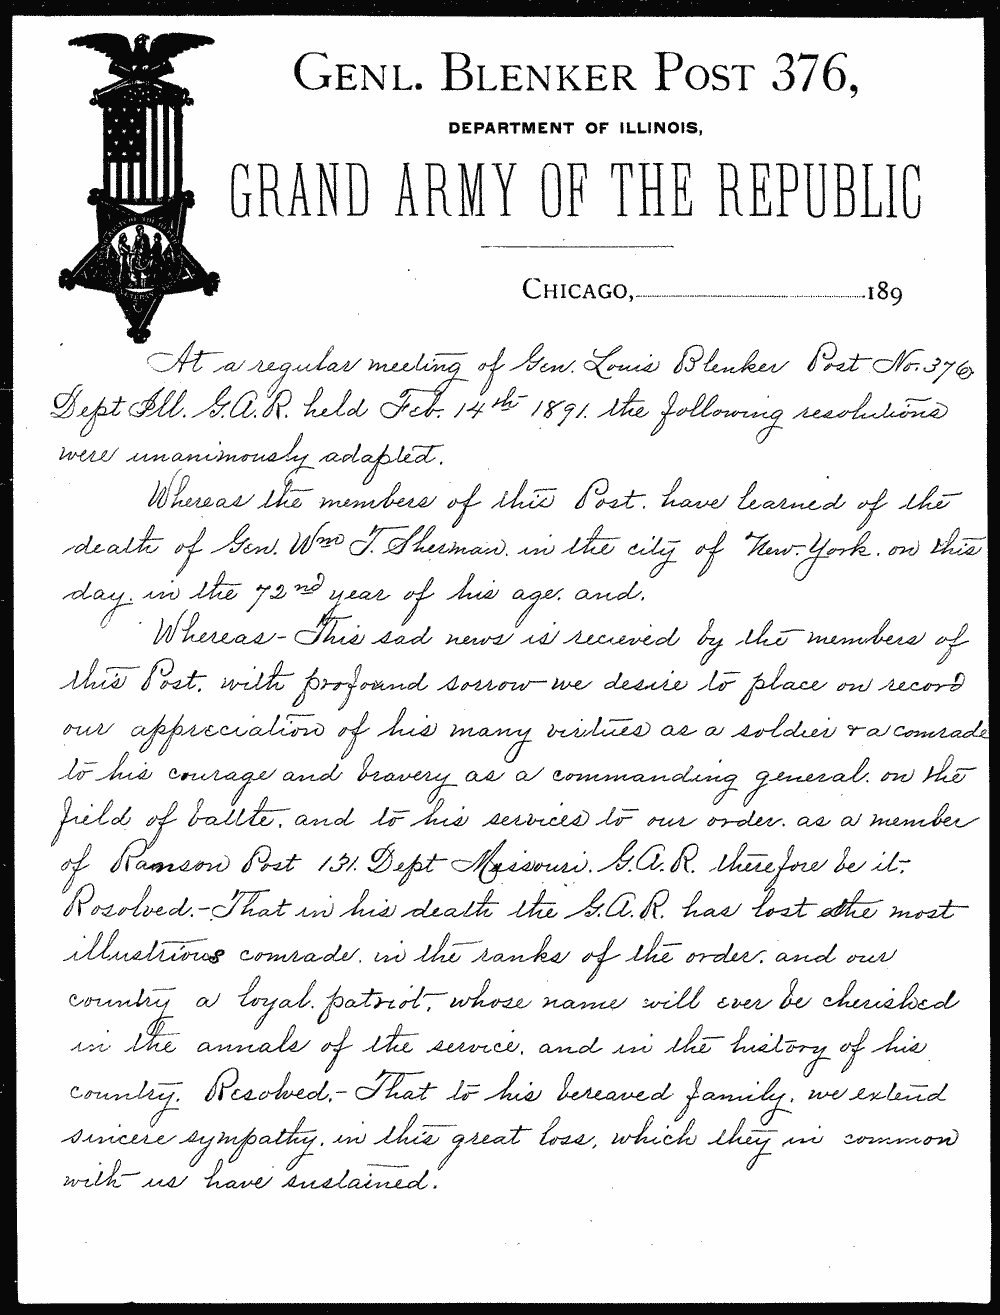 GENL. BLENKER POST 376,
DEPARTMENT OF ILLINOIS,
GRAND ARMY OF THE REPUBLIC
CHICAGO, 189
At a regular meeting of Gen. Louis Blenker Post No. 376
Dept Ill. G.A.R. held Feb. 14th 1891. the following resolutions
were unanimously adapted.
Whereas the members of this Post. have learned of the
death of Gen. Wm T. Sherman. in the city of New-York. on this
day. in the 72nd year of his age. and.
Whereas- This sad news is recieved by the members of
this Post. with profound sorrow- we desire to place on record
our appreciation of his many virtues as a soldier & a comrade
to his courage and bravery as a commanding general. on the
field of battle. and to his services to our order. as a member
of Ramson Post 131. Dept Missouri. G.A.R. therefore be it.
Rosolved.- That in his death the G.A.R. has lost the most
illustrious comrade. in the ranks of the order. and our
country a loyal. patriot, whose name will ever be cherished
in the annals of the service. and in the history of his
country. Resolved.- That to his bereaved family. we extend
sincere sympathy. in this great loss, which they in common
with us have sustained.